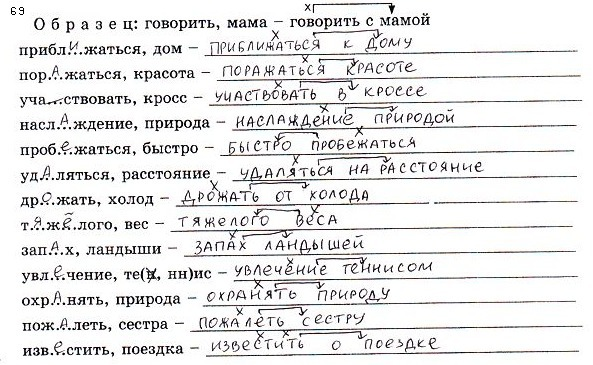 69
Образец: говорить, мама – говорить с мамой
прибл.и.жаться, дом – приближаться к дому
пор.а.жаться, красота – поражаться красоте
уча...ствовать, кросс – участвовать в кроссе
насл.а.ждение, природа – наслаждение природой
проб.е.жаться, быстро – быстро пробежаться
уд.а.ляться, расстояние – удаляться на расстояние
др.о.жать, холод – дрожать от холода
т.я.жё.лого, вес – тяжелого веса
зап.а.х, ландыши – запах ландышей
увл.е.чение, те(н, нн)ис – увлечение теннисом
охр.а.нять, природа – охранять природу
пож.а.леть, сестра – пожалеть сестру
изв.е.стить, поездка – известить о поездке